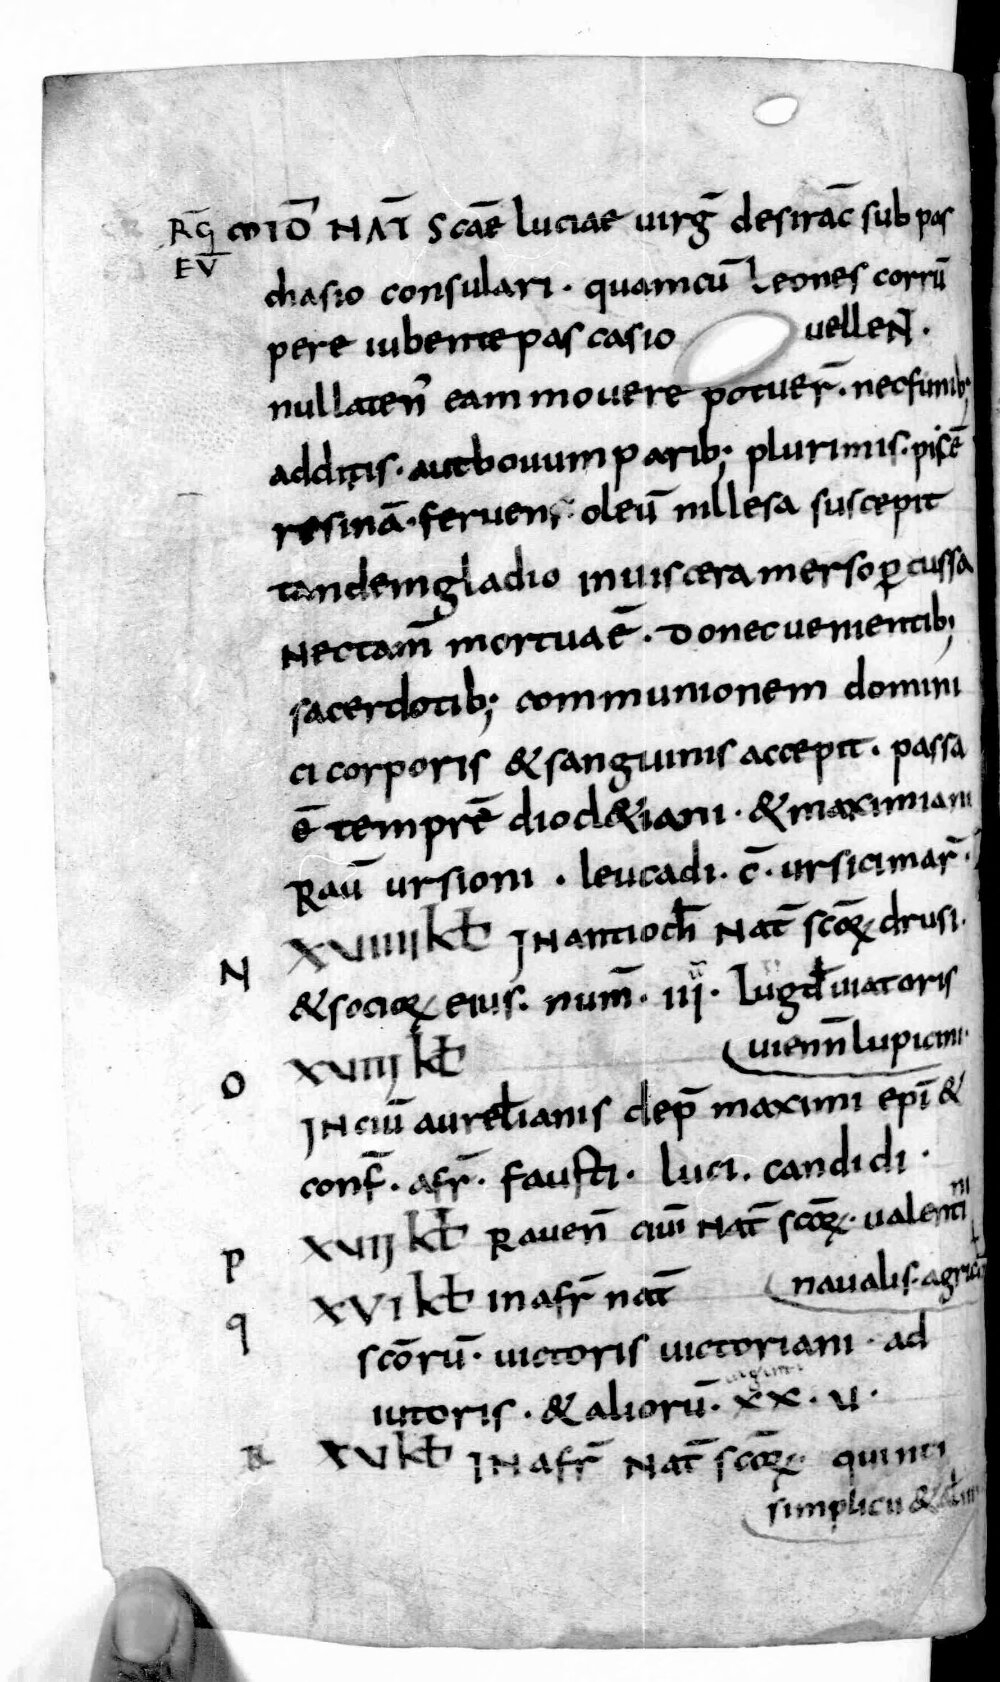 RḠ mıD̄ NAT̄ Scāe luciae uirḡ desirac̄ sub pas
EV
chasio consulari · quamcū leones corrū
pere iubente pascasio uelleN̄ ·
nullaten̄ eam mouere potuer̄ · nec funib;
additis · aut bouum parib; plurimis · picē
resinā · feruens oleū nil lesa suscepit
tandem gladio in uiscera merso ꝑcussa
Nec tam̄ mortua ē · Donec uenientib;
sacerdotib; communionem domini
ci corporis & sanguinis accepit · passa
ē temprē diocl&iani · & maximiani
Rau̅ ursioni · leucadi · c̄ · ursicimar̄ ·
N XVIIII kł IN antioch̄ Nat̄ scōꝝ drusi ·
& socioꝝ eius · num̄ · iii · lugd̄ uiatoris
O XVIII kł uienn̄ lupicini ·
IN ciū aurelianis dep̄ maximi ep̄i &
conf̄ · afr̄ · fausti · luci · candidi ·
P XVII kł Rauen̄ ciui Nat̄ scōꝝ · ualenti
ni
q XVI kł in afr̄ nat̄ naualis · agri
scōrū · uictoris uictoriani · ad
iutoris · & aliorū · XX · V ·
R XV kł IN afr̄ Nat̄ scōꝝ · quinti
simplicii &